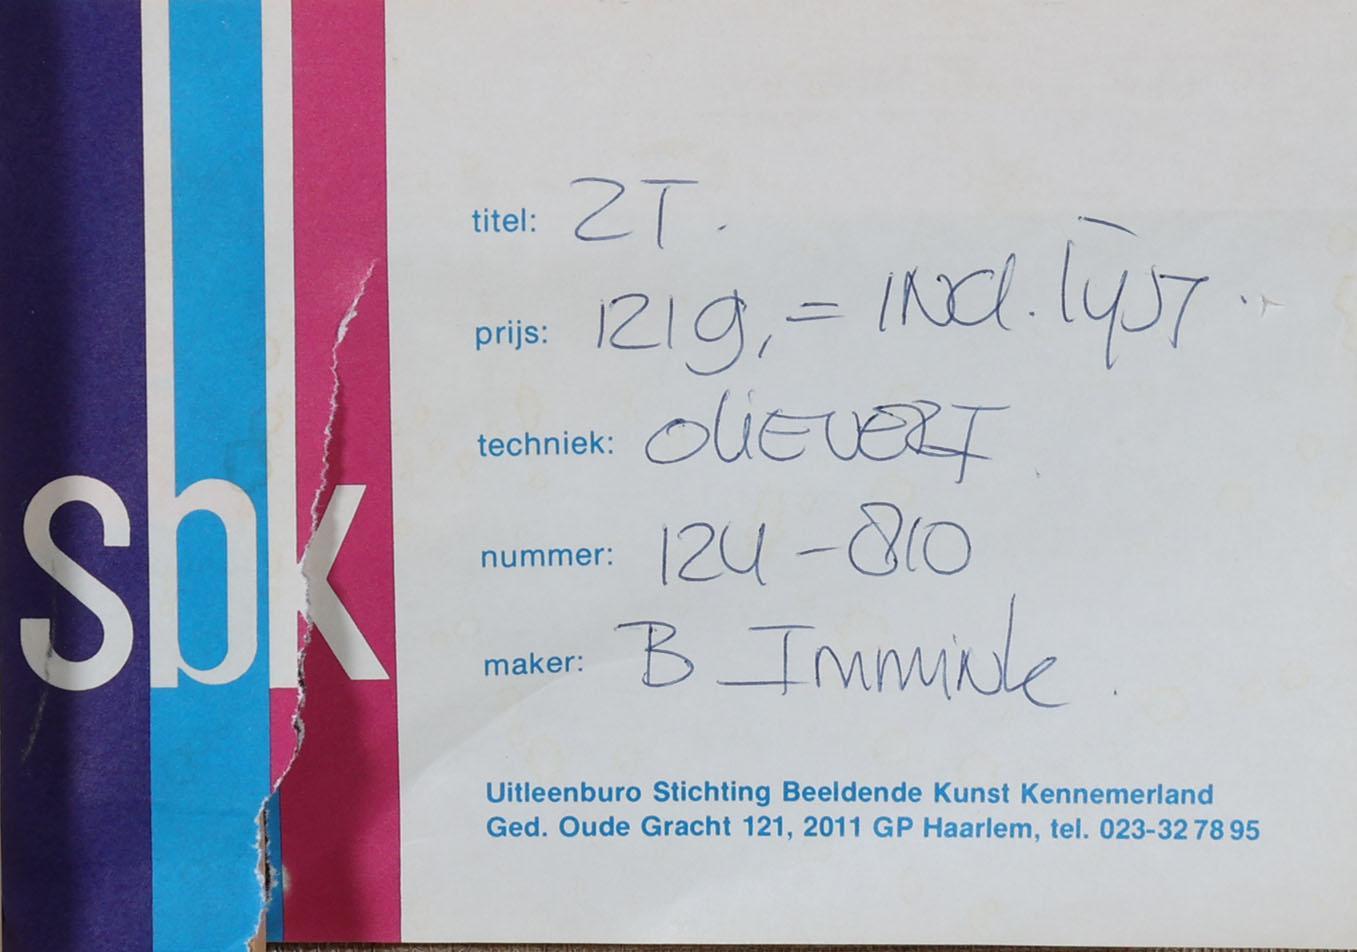 sbk
titel: ZT.
prijs: 1219,= incl. lijst
techniek: OLIEVERF
nummer: 124-810
maker: B Immink
Uitleenburo Stichting Beeldende Kunst Kennemerland
Ged. Oude Gracht 121, 2011 GP Haarlem, tel. 023-32 78 95